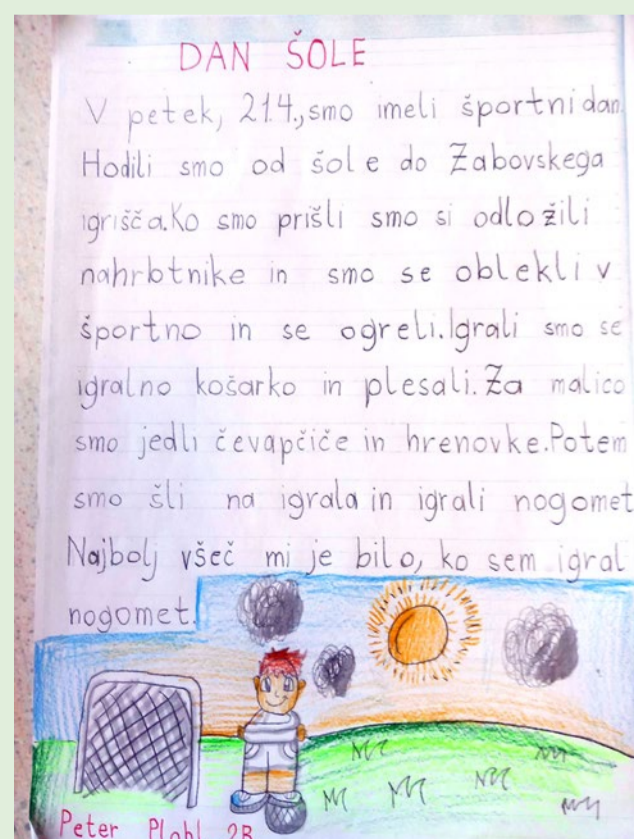 DAN ŠOLE
V petek, 21.4., smo imeli športni dan.
Hodili smo od šole do Zabovskega
igrišča. Ko smo prišli smo si odložili
nahrbtnike in smo se oblekli v
športno in se ogreli. Igrali smo se
igralno košarko in plesali. Za malico
smo jedli čevapčiče in hrenovke. Potem
smo šli na igrala in igrali nogomet
Najbolj všeč mi je bilo, ko sem igral
nogomet.
Peter Plohl 2B